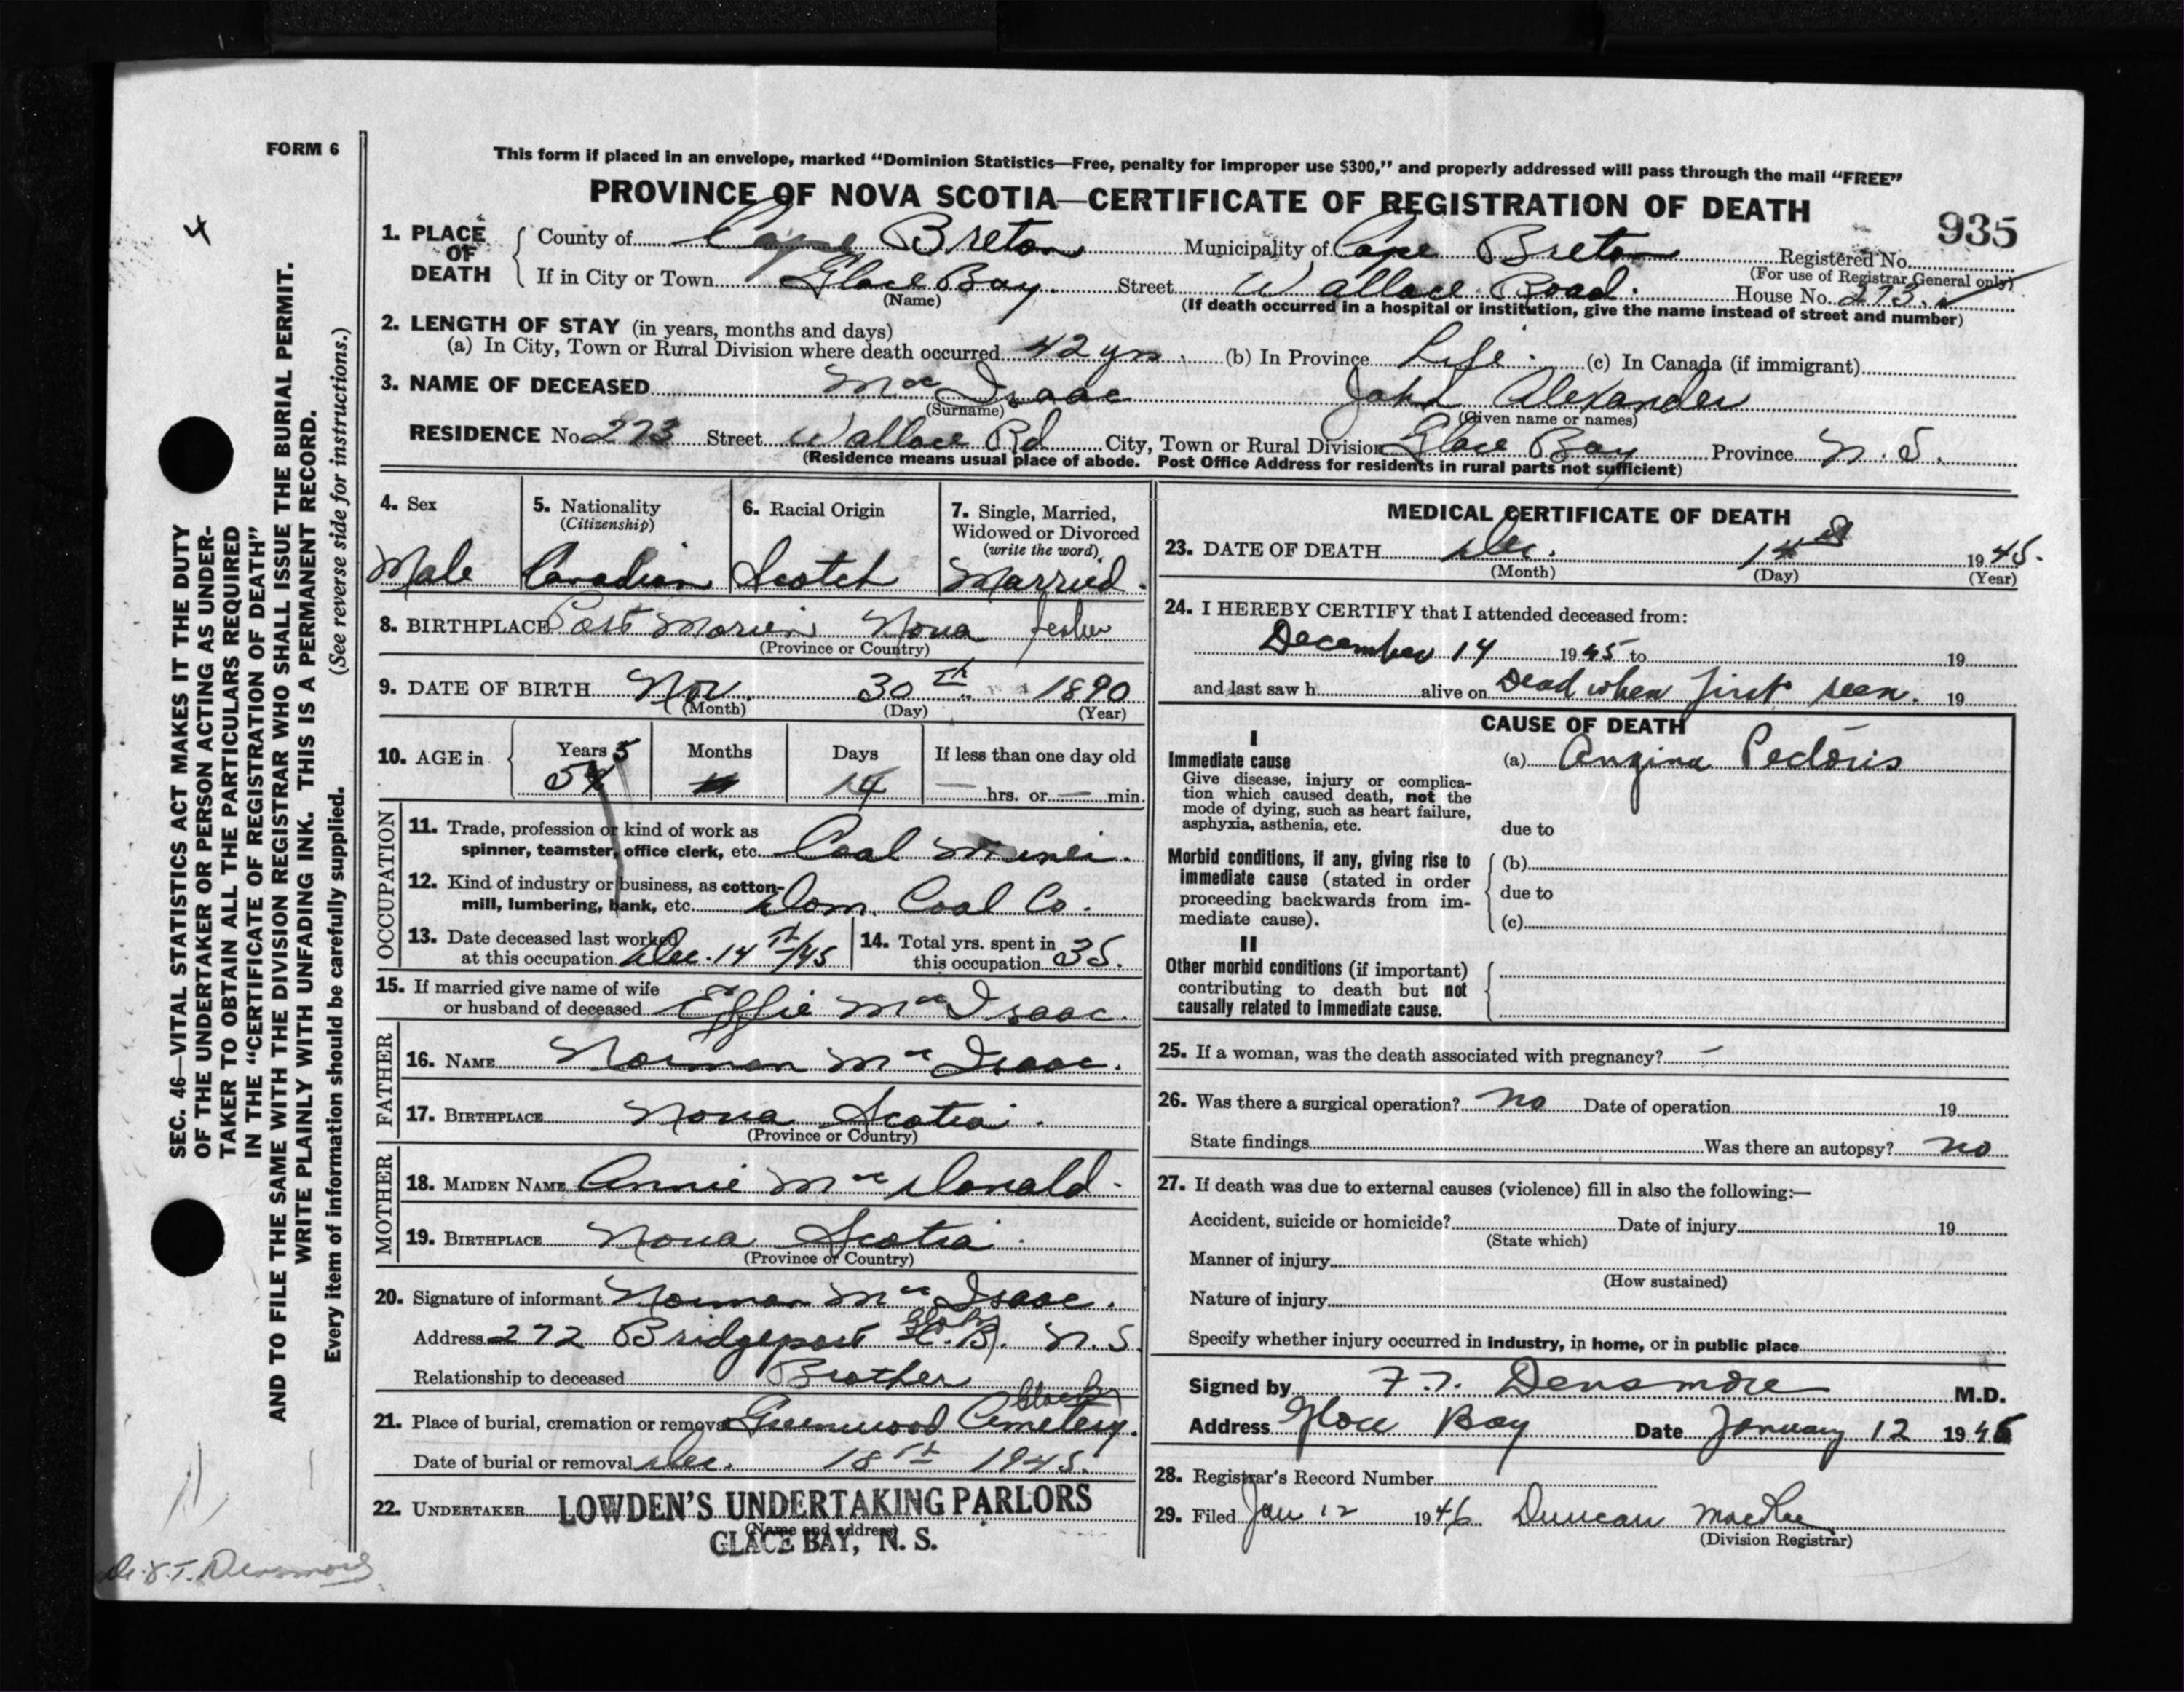 FORM 6
4
This form if placed in an envelope, marked “Dominion Statistics—Free, penalty for improper use $300,” and properly addressed will pass through the mail “FREE”
PROVINCE OF NOVA SCOTIA—CERTIFICATE OF REGISTRATION OF DEATH
935
1. PLACE OF DEATH
County of Cape Breton Municipality of Cape Breton Registered No.
(For use of Registrar General only)
If in City or Town Glace Bay. Street Wallace Road. House No. 273.
(Name) (If death occurred in a hospital or institution, give the name instead of street and number)
2. LENGTH OF STAY (in years, months and days)
(a) In City, Town or Rural Division where death occurred 42 yrs. (b) In Province Life. (c) In Canada (if immigrant)
3. NAME OF DECEASED Mac Isaac John Alexander
(Surname) (Given name or names)
RESIDENCE No. 273 Street Wallace Rd City, Town or Rural Division Glace Bay Province N.S.
(Residence means usual place of abode. Post Office Address for residents in rural parts not sufficient)
4. Sex
Male
5. Nationality
(Citizenship)
Canadian
6. Racial Origin
Scotch
7. Single, Married,
Widowed or Divorced
(write the word)
Married.
8. BIRTHPLACE Port Morien Nova
(Province or Country)
9. DATE OF BIRTH Nov. 30th 1890
(Month) (Day) (Year)
10. AGE in
Years Months Days If less than one day old
55 14 — hrs. or — min.
OCCUPATION
11. Trade, profession or kind of work as
spinner, teamster, office clerk, etc. Coal Miner.
12. Kind of industry or business, as cotton-
mill, lumbering, bank, etc. Dom. Coal Co.
13. Date deceased last worked
at this occupation Dec. 14th/45
14. Total yrs. spent in
this occupation 35.
15. If married give name of wife
or husband of deceased Effie Mac Isaac.
FATHER
16. NAME Norman Mac Isaac.
17. BIRTHPLACE Nova Scotia.
(Province or Country)
MOTHER
18. MAIDEN NAME Annie Mac Donald.
19. BIRTHPLACE Nova Scotia.
(Province or Country)
20. Signature of informant Norman Mac Isaac.
Address 272 Bridgeport N.S
Relationship to deceased Brother
21. Place of burial, cremation or removal Greenwood Cemetery.
Date of burial or removal Dec. 18th 1945.
22. UNDERTAKER LOWDEN'S UNDERTAKING PARLORS
(Name and address)
GLACE BAY, N. S.
MEDICAL CERTIFICATE OF DEATH
23. DATE OF DEATH Dec. 14 1945.
(Month) (Day) (Year)
24. I HEREBY CERTIFY that I attended deceased from:
December 14 1945 to 19
and last saw h alive on Dead when first seen. 19
CAUSE OF DEATH
I
Immediate cause
Give disease, injury or complica-
tion which caused death, not the
mode of dying, such as heart failure,
asphyxia, asthenia, etc.
(a) Angina Pectoris
due to
Morbid conditions, if any, giving rise to
immediate cause (stated in order
proceeding backwards from im-
mediate cause).
(b)
due to
(c)
II
Other morbid conditions (if important)
contributing to death but not
causally related to immediate cause.
25. If a woman, was the death associated with pregnancy? —
26. Was there a surgical operation? No Date of operation 19
State findings Was there an autopsy? No
27. If death was due to external causes (violence) fill in also the following:—
Accident, suicide or homicide? Date of injury 19
(State which)
Manner of injury
(How sustained)
Nature of injury
Specify whether injury occurred in industry, in home, or in public place
Signed by F.T. Densmore M.D.
Address Glace Bay Date January 12 1946
28. Registrar's Record Number
29. Filed Jan 12 1946 Duncan MacRae
(Division Registrar)
SEC. 46—VITAL STATISTICS ACT MAKES IT THE DUTY
OF THE UNDERTAKER OR PERSON ACTING AS UNDER-
TAKER TO OBTAIN ALL THE PARTICULARS REQUIRED
IN THE “CERTIFICATE OF REGISTRATION OF DEATH”
AND TO FILE THE SAME WITH THE DIVISION REGISTRAR WHO SHALL ISSUE THE BURIAL PERMIT.
WRITE PLAINLY WITH UNFADING INK. THIS IS A PERMANENT RECORD.
Every item of information should be carefully supplied. (See reverse side for instructions.)
Dr. F.T. Densmore